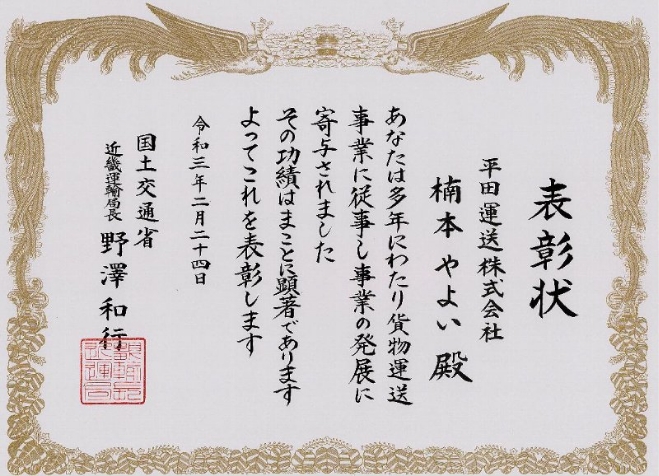 表彰状
平田運送株式会社
楠本やよい殿
あなたは多年にわたり貨物運送
事業に従事し事業の発展に
寄与されました
その功績はまことに顕著であります
よってこれを表彰します
令和三年二月二十四日
国土交通省
近畿運輸局長 野澤和行